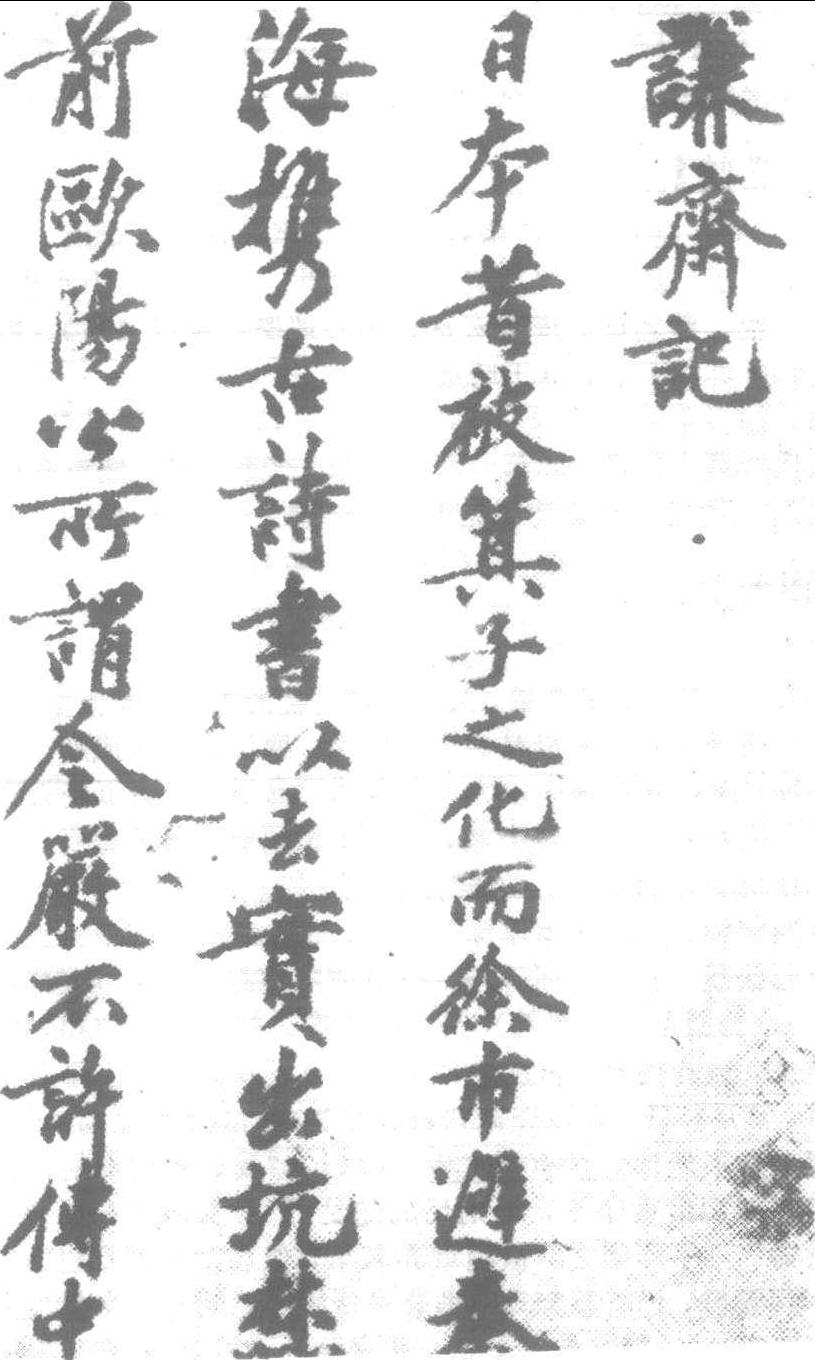 謙齋記
日本昔被箕子之化而徐市避秦
海攜古詩書以去實出坑焚
前歐陽公所謂令嚴不許傳中